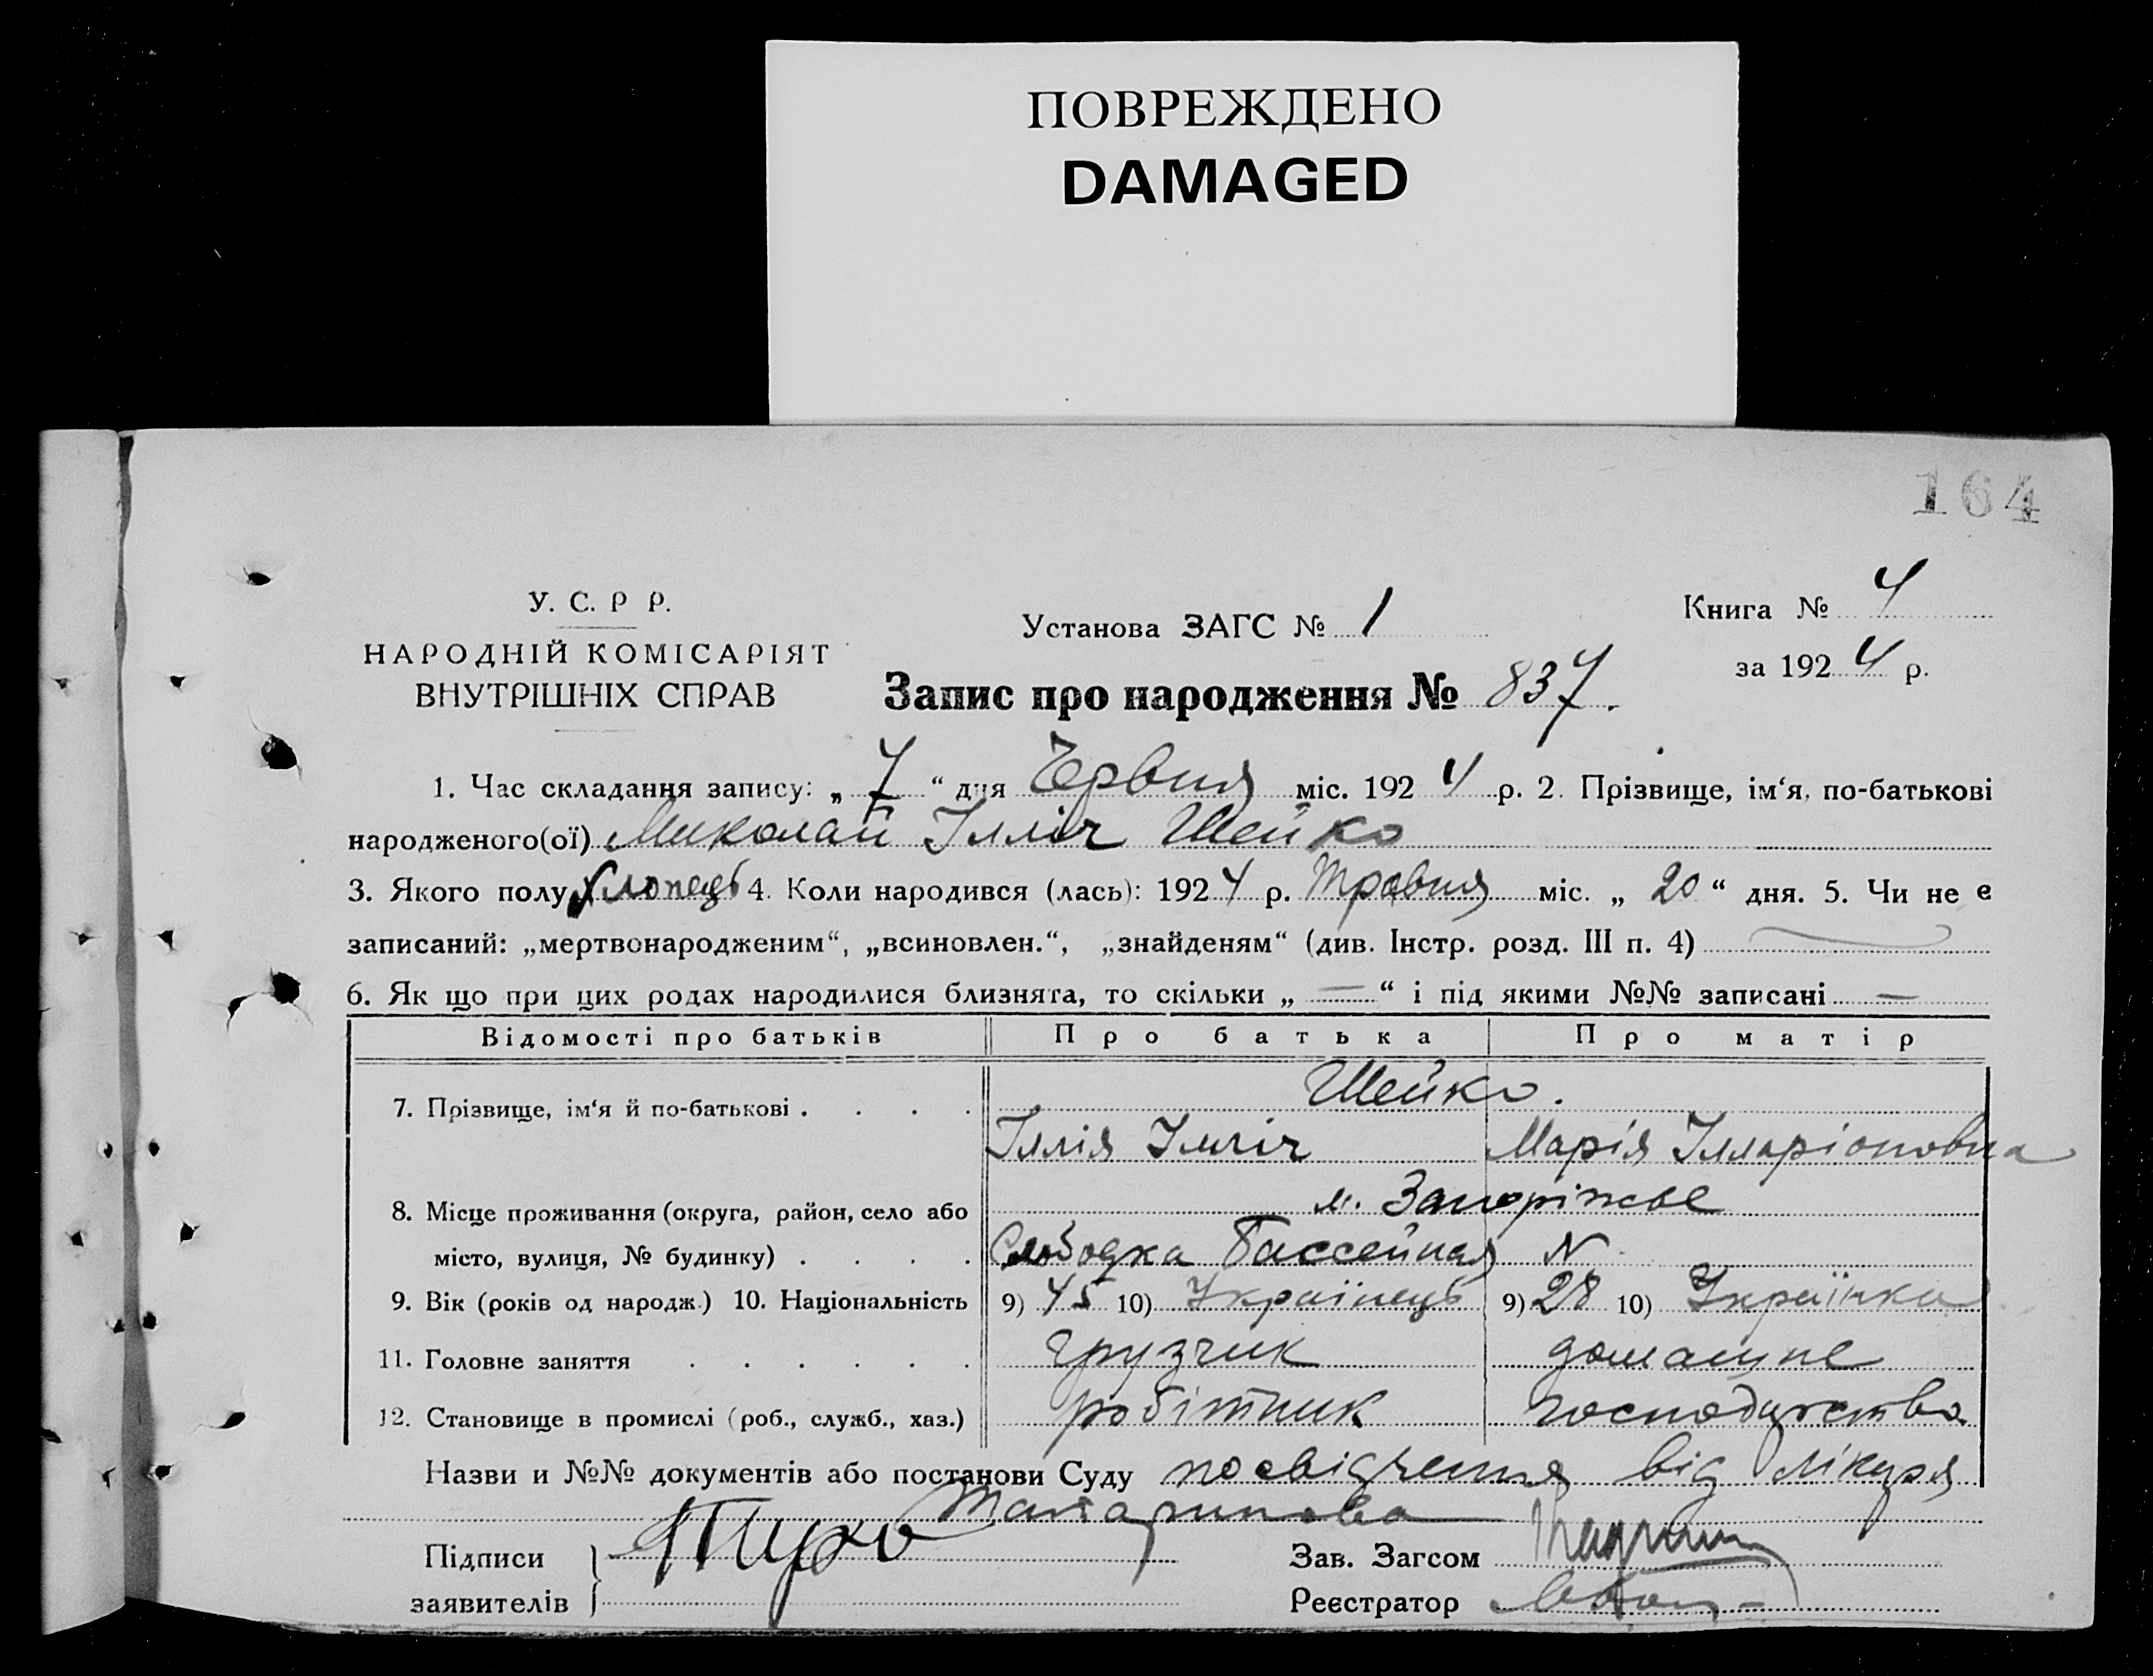 ПОВРЕЖДЕНО
DAMAGED
164
У. С. Р Р.
НАРОДНІЙ КОМІСАРІЯТ
ВНУТРІШНІХ СПРАВ
Установа ЗАГС № 1
Книга № 4
за 1924 р.
Запис про народження № 837.
1. Час складання запису: „7“ дня Червня міс. 1924 р. 2. Прізвище, ім‘я, по-батькові
народженого(ої) Миколай Ілліч Шейко
3. Якого полу хлопець 4. Коли народився (лась): 1924 р. Травня міс. „20“ дня. 5. Чи не є
записаний: „мертвонародженим“, „всиновлен.“, „знайденям“ (див. Інстр. розд. III п. 4)
6. Як що при цих родах народилися близнята, то скільки „—“ і під якими №№ записані —
Відомості про батьків Про батька Про матір
7. Прізвище, ім‘я й по-батькові . . . . Шейко.
Ілля Ілліч Марія Ілларіоновна
8. Місце проживання (округа, район, село або м. Запоріжье
місто, вулиця, № будинку) . . . . Слободка Бассейная N
9. Вік (років од народж.) 10. Національність 9) 45 10) Українець 9) 28 10) Українка
11. Головне заняття . . . . . . грузчик домашне
12. Становище в промислі (роб., служб., хаз.) робітник господарство
Назви и №№ документів або постанови Суду посвідчення від лікаря
Підписи
заявителів
Зав. Загсом
Реєстратор